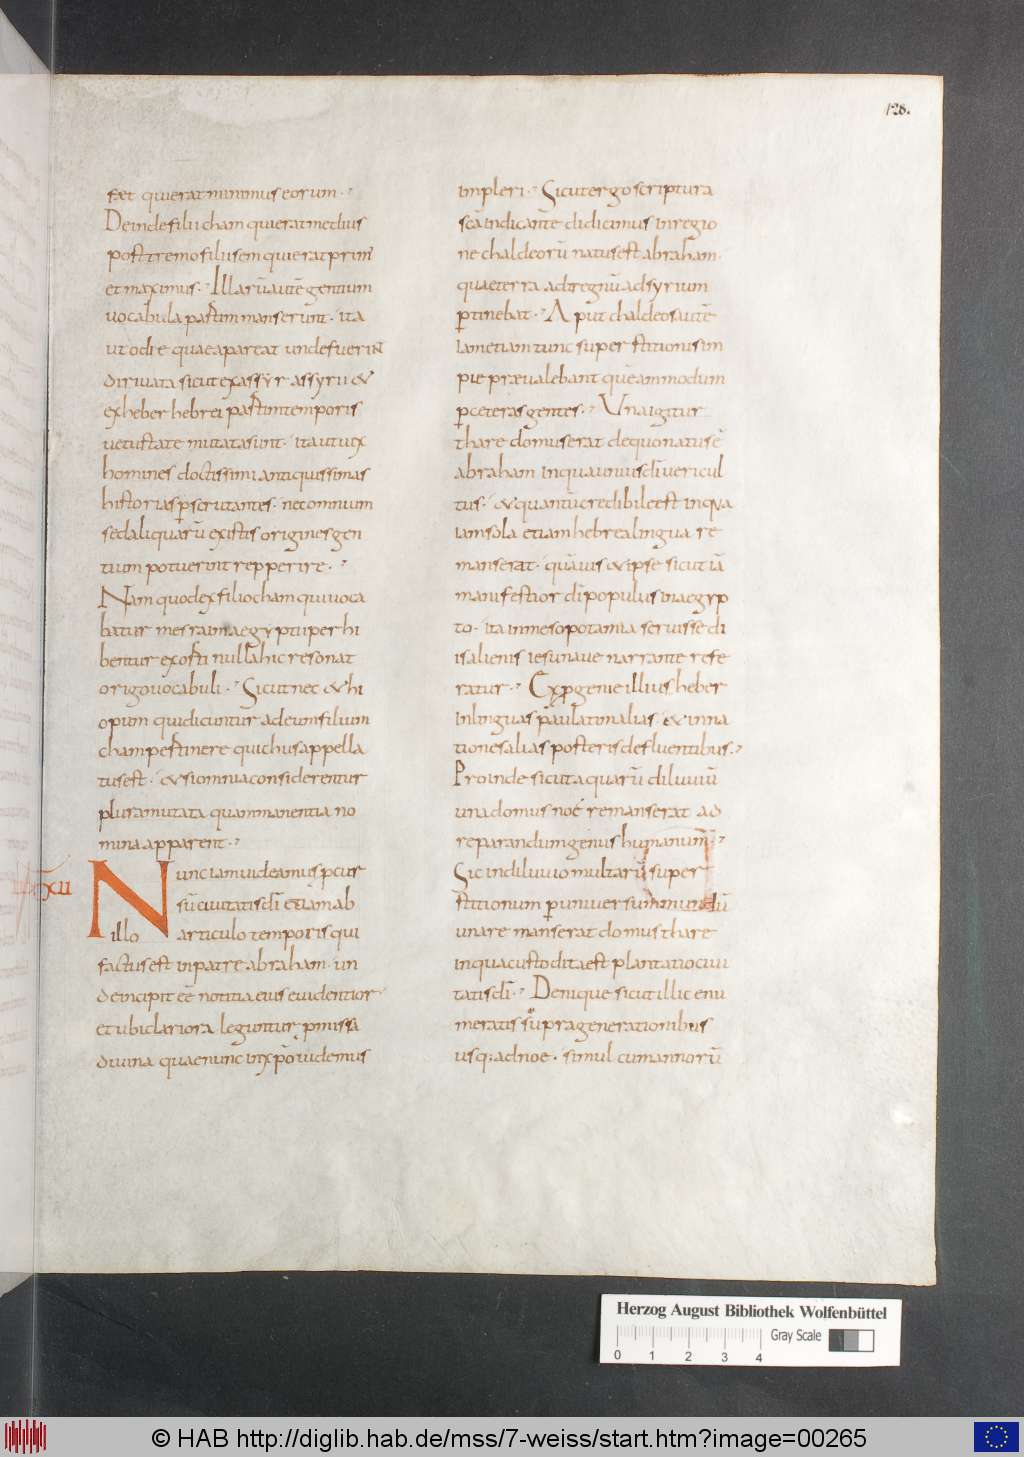 128.
fæt quieratminimus eorum.
Deindefilii cham quieratmedius
posttremo filiusem quieratprim̄
et maximus. Illarūautē gentium
uocabula partim manserunt. ita
ut odie quae apareat undefuerin
diriuata sicut exassyr assyrii &
exheber hebrei partimtemporis
uetustate mutatasunt. itautuix
homines doctissimi antiquissimas
historias pscrutantes. necomnium
sedaliquarū existis originesgen
tium potuerint repperire.
Nam quodexfiliocham quiuoca
batur mesraimaegyptii perhi
bentur exorti nullahic resonat
origouocabuli. Sicut nec &hi
opum quidicuntur adeumfilium
champertinere quichusappella
tusest. &siomniaconsiderentur
pluramutata quammanentia no
mina apparent.
xii
Nunciamuideamus pcur
sū ciuitatisdī etiamab
illo articulo temporis qui
factusest inpatre abraham. un
deincipit eē notitia eius euidentior
et ubi clariora leguntur pmissa
diuina quaenunc inxpō uidemus
impleri. Sicutergo scriptura
scāindicante didicimus inregio
ne chaldeorū natusest abraham.
quaeterra adregnūadsyrium
ptinebat. Aput chaldeosautē
iametiam tunc superstitionisim
pie præualebant quēammodum
pceterasgentes. Unaigitur
thare domuserat dequonatusē
abraham inquauniusdī uericul
tus. &quantūcredibileest inqua
iamsola etiamhebrealingua re
manserat. quāuis &ipse sicut iā
manifestior dī populus inaegyp
to. ita inmesopotamia seruisse di
isalienis iesunaue narrante refe
ratur. Exprogenieillius heber
inlinguas paulatimalias. &inna
tionesalias posterisdefluentibus.
Proinde sicutaquarū diluuiū
unadomus noé remanserat ad
reparandumgenus humanum.
Sicindiluuio multarū super
stitionum puniuersummundū
unare manserat domus thare
inquacustoditaest plantatiociui
tatisdī. Denique sicut illic enu
meratis supragenerationibus
usq: adnoe. simul cumannorū
Herzog August Bibliothek Wolfenbüttel
Gray Scale
0 1 2 3 4
© HAB http://diglib.hab.de/mss/7-weiss/start.htm?image=00265